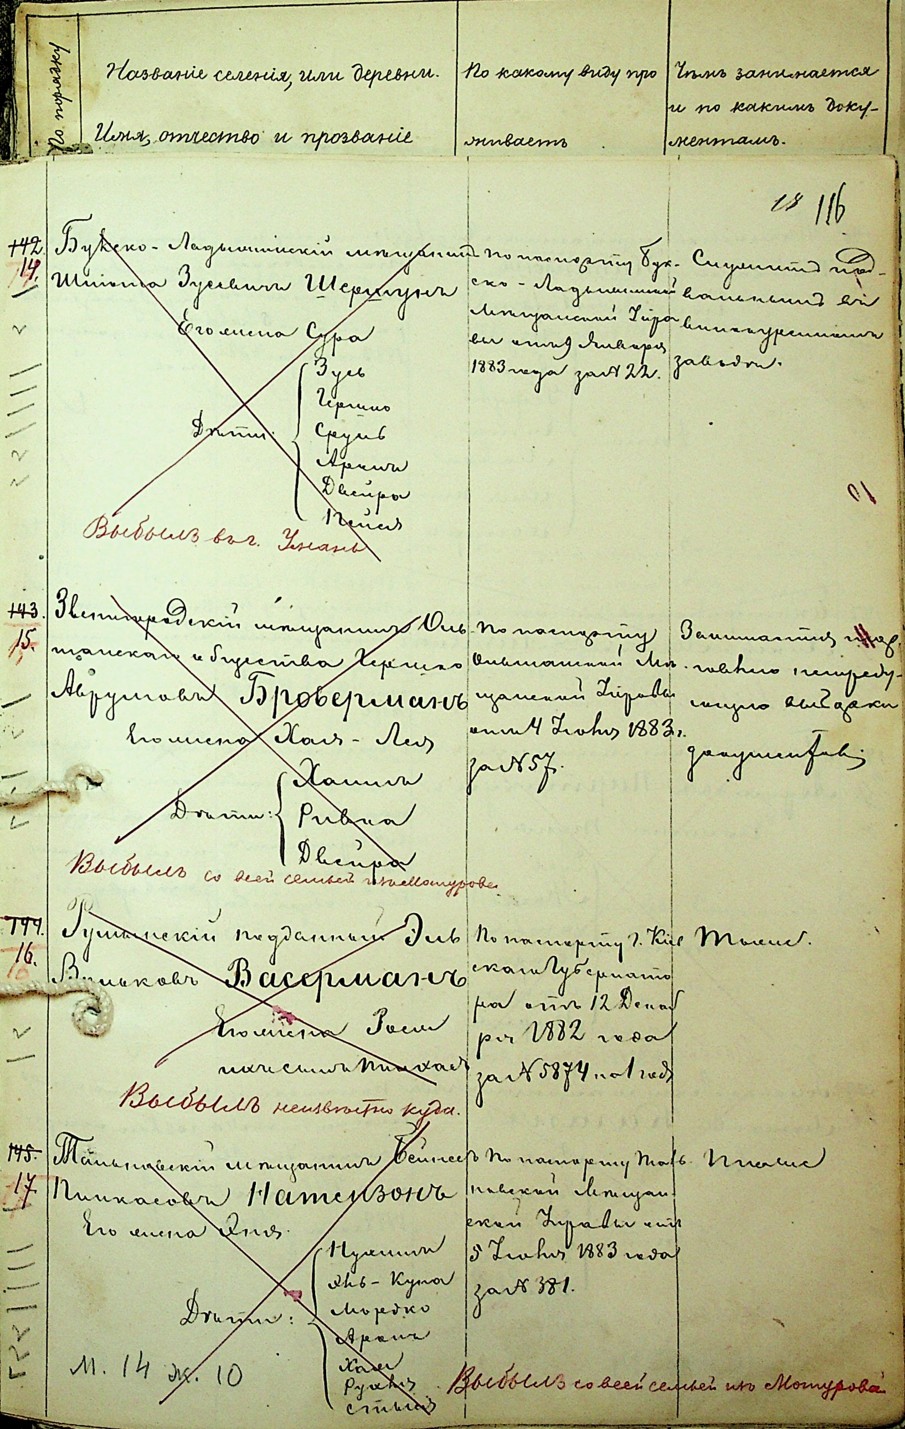 По порядку
Названіе селенія, или деревни.
Имя, отчество и прозваніе
По какому виду про
живаетъ
Чѣмъ занимается
и по какимъ доку-
ментамъ.
18 116
142.
14.
Букско-Ладыжинскій мѣщанинъ
Зусевичъ Шерчунъ
Его жена Сура
Дѣти:
Зусь
Гершко
Сруль
Аронъ
Двейра
Пейся
Выбылъ въ г. Умань
По паспорту Бук-
ско-Ладыжинской
Мѣщанской Упра
вы отъ 9 Января
1883 года за № 22.
Служитъ
въ
винокуренномъ
заводѣ.
143.
15.
Звенигородскій мѣщанинъ Оль
шанскаго общества Гершко
Аврумовъ Броверманъ
Его жена Хая-Лея
Дѣти:
Хаимъ
Ривка
Двейра
Выбылъ со всей семьей изъ Мотурова.
По паспорту
Ольшанской Мѣ-
щанской Управы
отъ 4 Іюня 1883 г.
за № 57.
Занимается
документовъ
144.
16.
Румынскій подданный Эль
Васерманъ
Его жена
ихъ сынъ Пинхасъ
Выбылъ неизвѣстно куда.
По паспорту г. Кіе
вскаго Губернато
ра отъ 12 Декаб
ря 1882 года
за № 5874 на 1 годъ
Тоже.
145.
17.
Тальновскій мѣщанинъ
Пинкасовъ Натензонъ
Его жена
Дѣти:
Мордко
Аронъ
Хая
Рухля
М. 14 ж. 10
По паспорту Таль
новской Мѣщан
ской Управы отъ
5 Іюня 1883 года
за № 381.
Тоже
Выбылъ со всей семьей изъ Мотурова